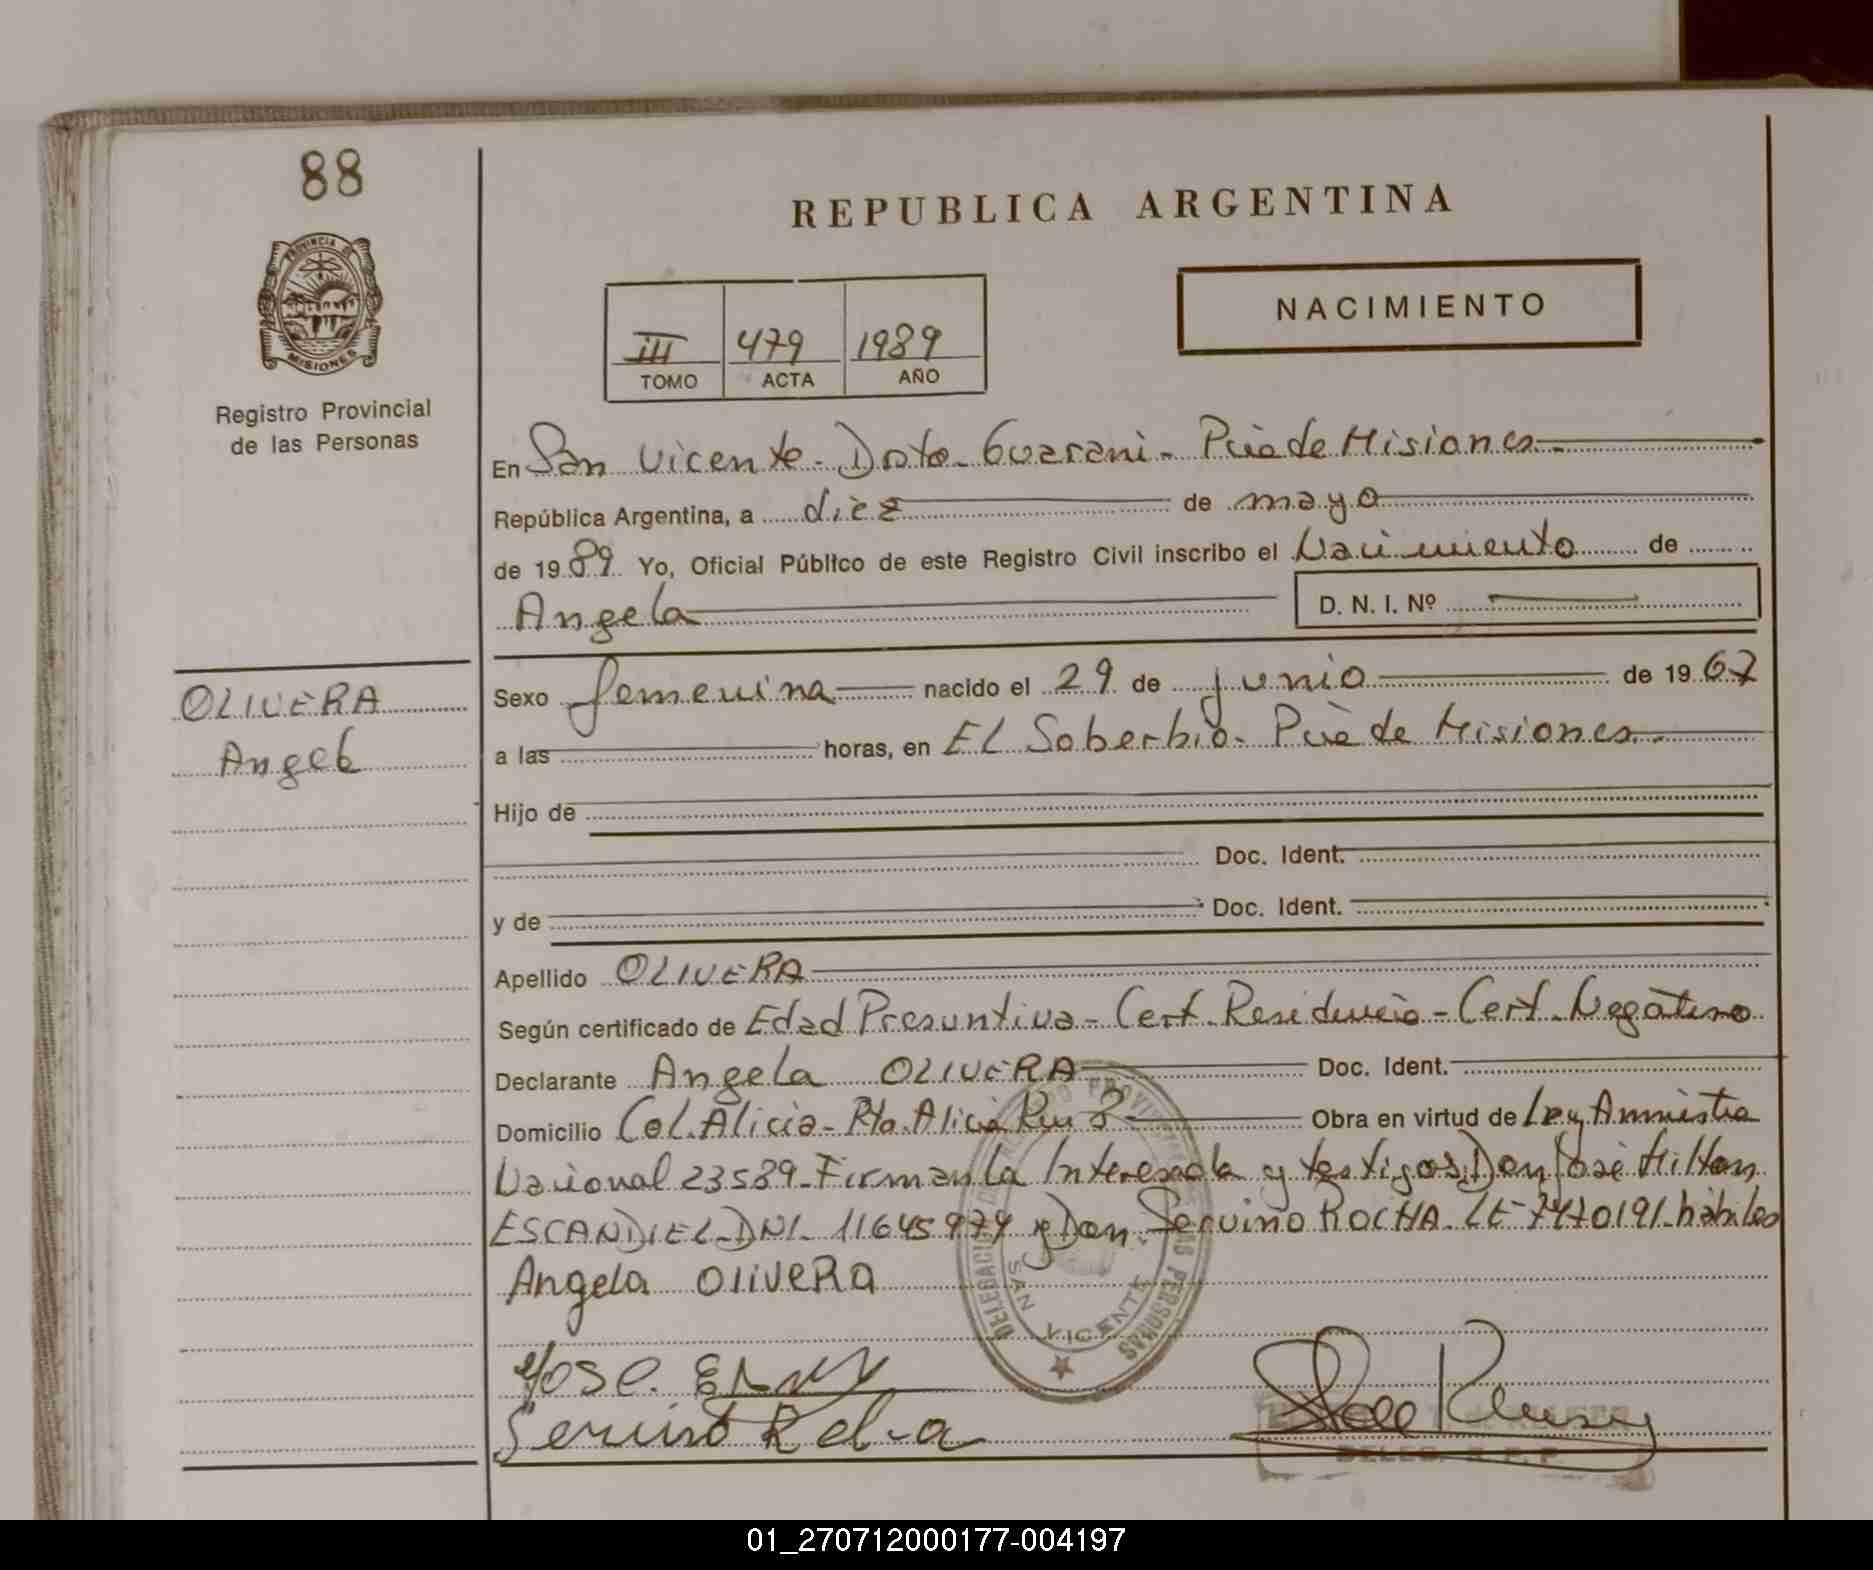 88
PROVINCIA DE
MISIONES
Registro Provincial
de las Personas
REPUBLICA ARGENTINA
NACIMIENTO
III 479 1989
TOMO ACTA AÑO
En San Vicente - Dpto. Guarani - Pcia de Misiones.-
República Argentina, a diez de mayo
de 1989 Yo, Oficial Público de este Registro Civil inscribo el Nacimiento de
Angela D. N. I. Nº
OLIVERA
Angela
Sexo femenina nacido el 29 de junio de 1967
a las horas, en EL Soberbio - Pcia de Misiones.
Hijo de
Doc. Ident.
y de Doc. Ident.
Apellido OLIVERA
Según certificado de Edad Presuntiva - Cert. Residencia - Cert. Negativo
Declarante Angela OLIVERA Doc. Ident.
Domicilio Col. Alicia - Pto. Alicia Obra en virtud de Ley Amnistia
Nacional 23589 - Firman la Interesada y testigos: Don José Milton
ESCANDIEL - DNI. 11645979 y Don Servino ROCHA - LE - 7470191 - hábiles
Angela OLIVERA
JOSE
Servino
DELEGACION REGISTRO PROVINCIAL DE LAS PERSONAS
SAN VICENTE
DELEG. R. P. P.
01_270712000177-004197